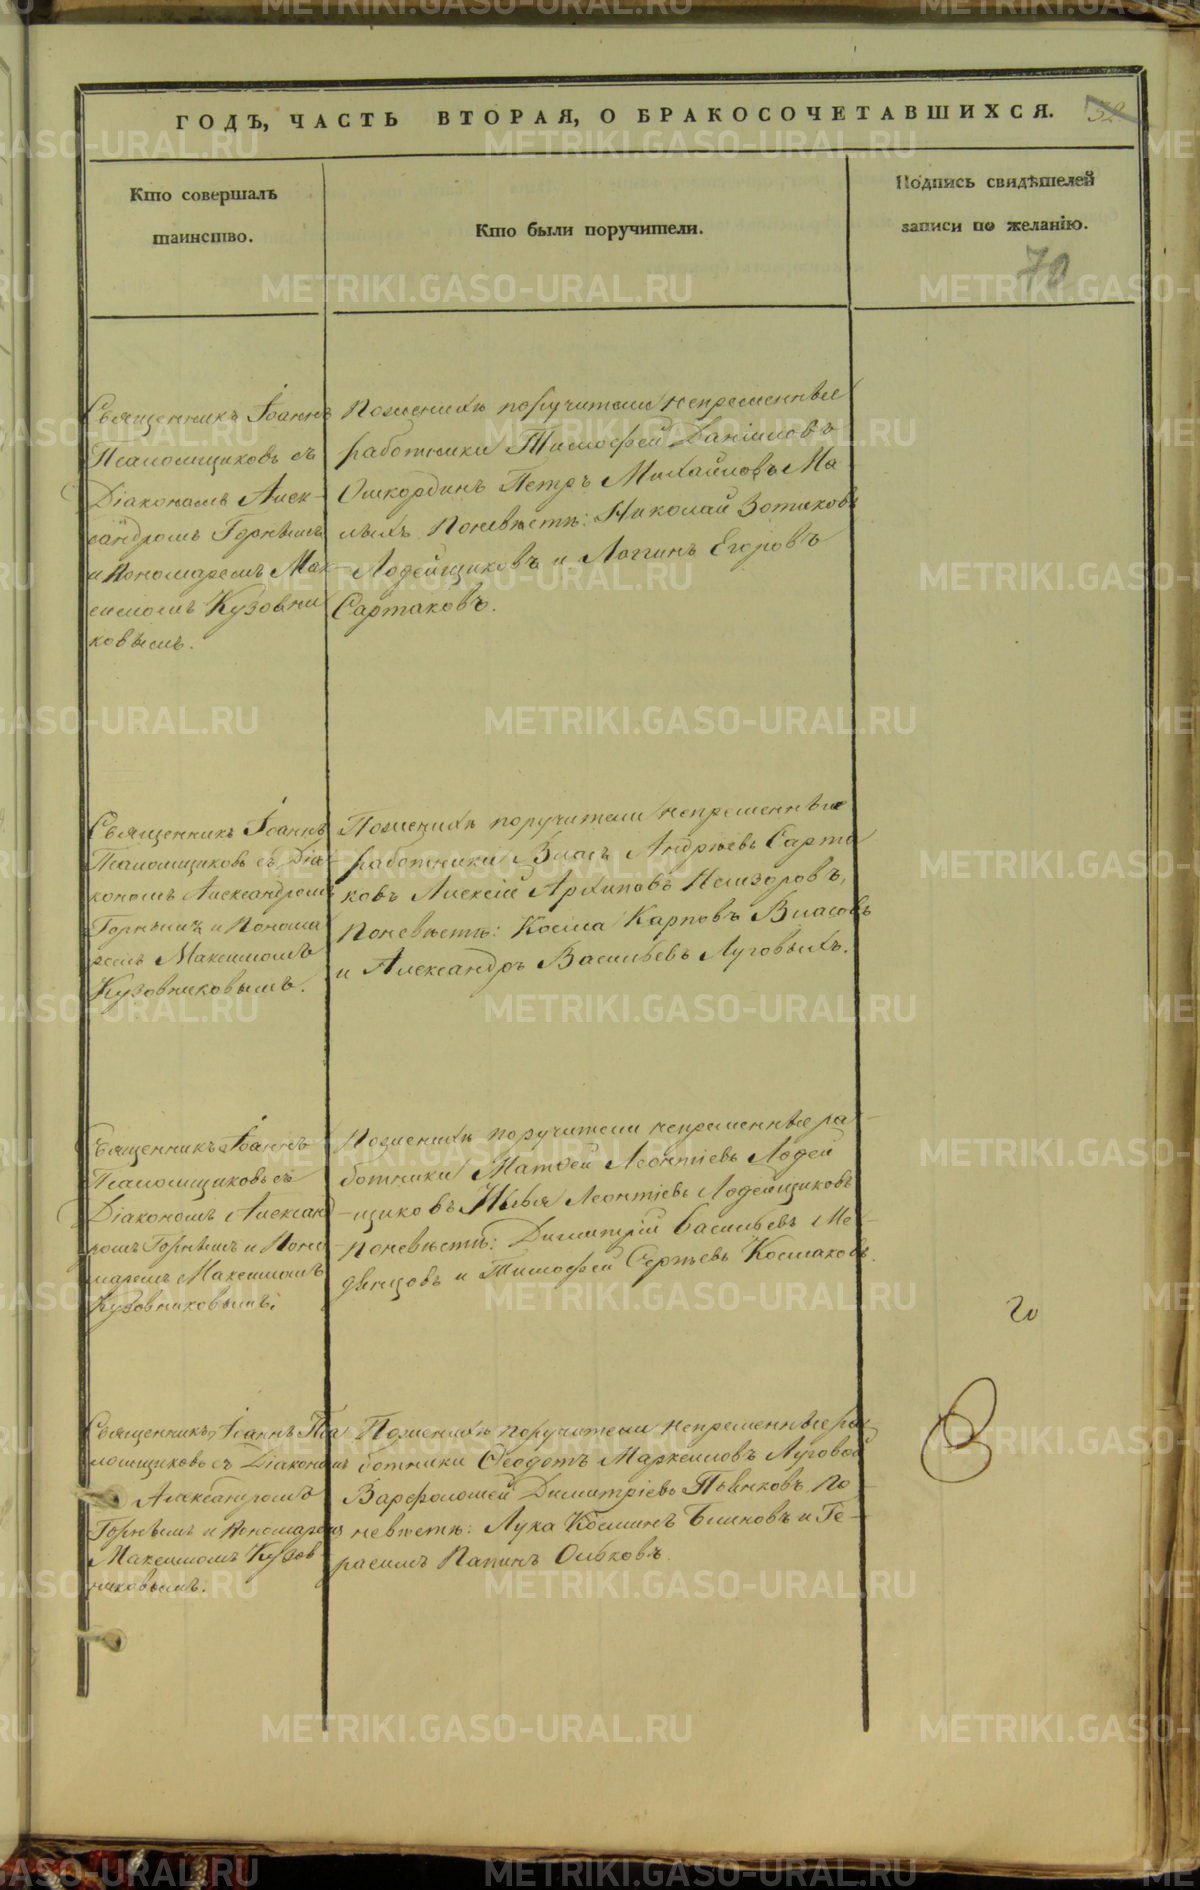 ГОДЪ, ЧАСТЬ ВТОРАЯ, О БРАКОСОЧЕТАВШИХСЯ. 32
Кто совершалъ
таинство.
Кто были поручители.
Подпись свидѣтелей
записи по желанію.
70
Священникъ Іоаннъ
Псаломщиковъ съ
Діакономъ Алек-
сандромъ Горнымъ
и Пономаремъ Мак-
симомъ Кузовни
ковымъ.
Поженихѣ поручители непременныя
работники Тимофей Даніиловъ
Ошкординъ Петръ Михайловъ Ма
лыхъ Поневѣстѣ: Николай Зотиковъ
Лодейщиковъ и Логгинъ Егоровъ
Сартаковъ.
Священникъ Іоаннъ
Псаломщиковъ съ Діа-
кономъ Александромъ
Горнымъ и Понома
ремъ Максимомъ
Кузовниковымъ.
Поженихѣ поручители непременныя
работники Власъ Андрѣевъ Сарта
ковъ Алексій Архиповъ Немзоровъ,
Поневѣстѣ: Косма Карповъ Власовъ
и Александръ Васильевъ Луговыхъ.
Священникъ Іоаннъ
Псаломщиковъ съ
Діакономъ Александ
ромъ Горнымъ и Поно-
маремъ Максимомъ
Кузовниковымъ.
Поженихѣ поручители непременныя ра-
ботники Матѳей Леонтіевъ Лодей
-щиковъ Илья Леонтіевъ Лодейщиковъ
Поневѣстѣ: Димитрій Васильевъ Ме-
дынцовъ и Тимофей Сергѣевъ Космаковъ.
Священникъ Іоаннъ Пса
ломщиковъ съ Діакономъ
Александромъ
Горнымъ и Пономаремъ
Максимомъ Кузов-
никовымъ.
Поженихѣ поручители непременныя ра-
ботники Ѳеодотъ Маркеловъ Луговой
Варѳоломей Димитріевъ Пьянковъ По-
невѣстѣ: Лука Косминъ Блиновъ и Ге-
расимъ Папинъ Ольковъ.
METRIKI.GASO-URAL.RU